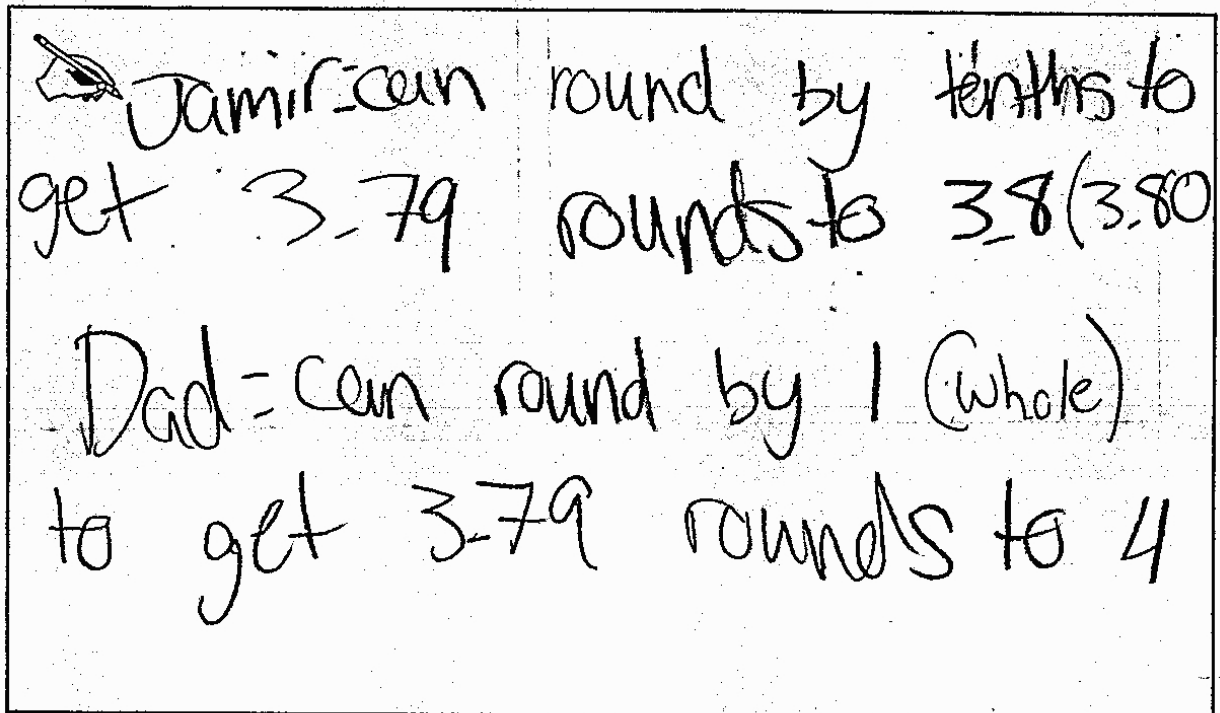 Jamir=can round by tenths to
get 3.79 rounds to 3.8(3.80
Dad=can round by 1 (whole)
to get 3.79 rounds to 4